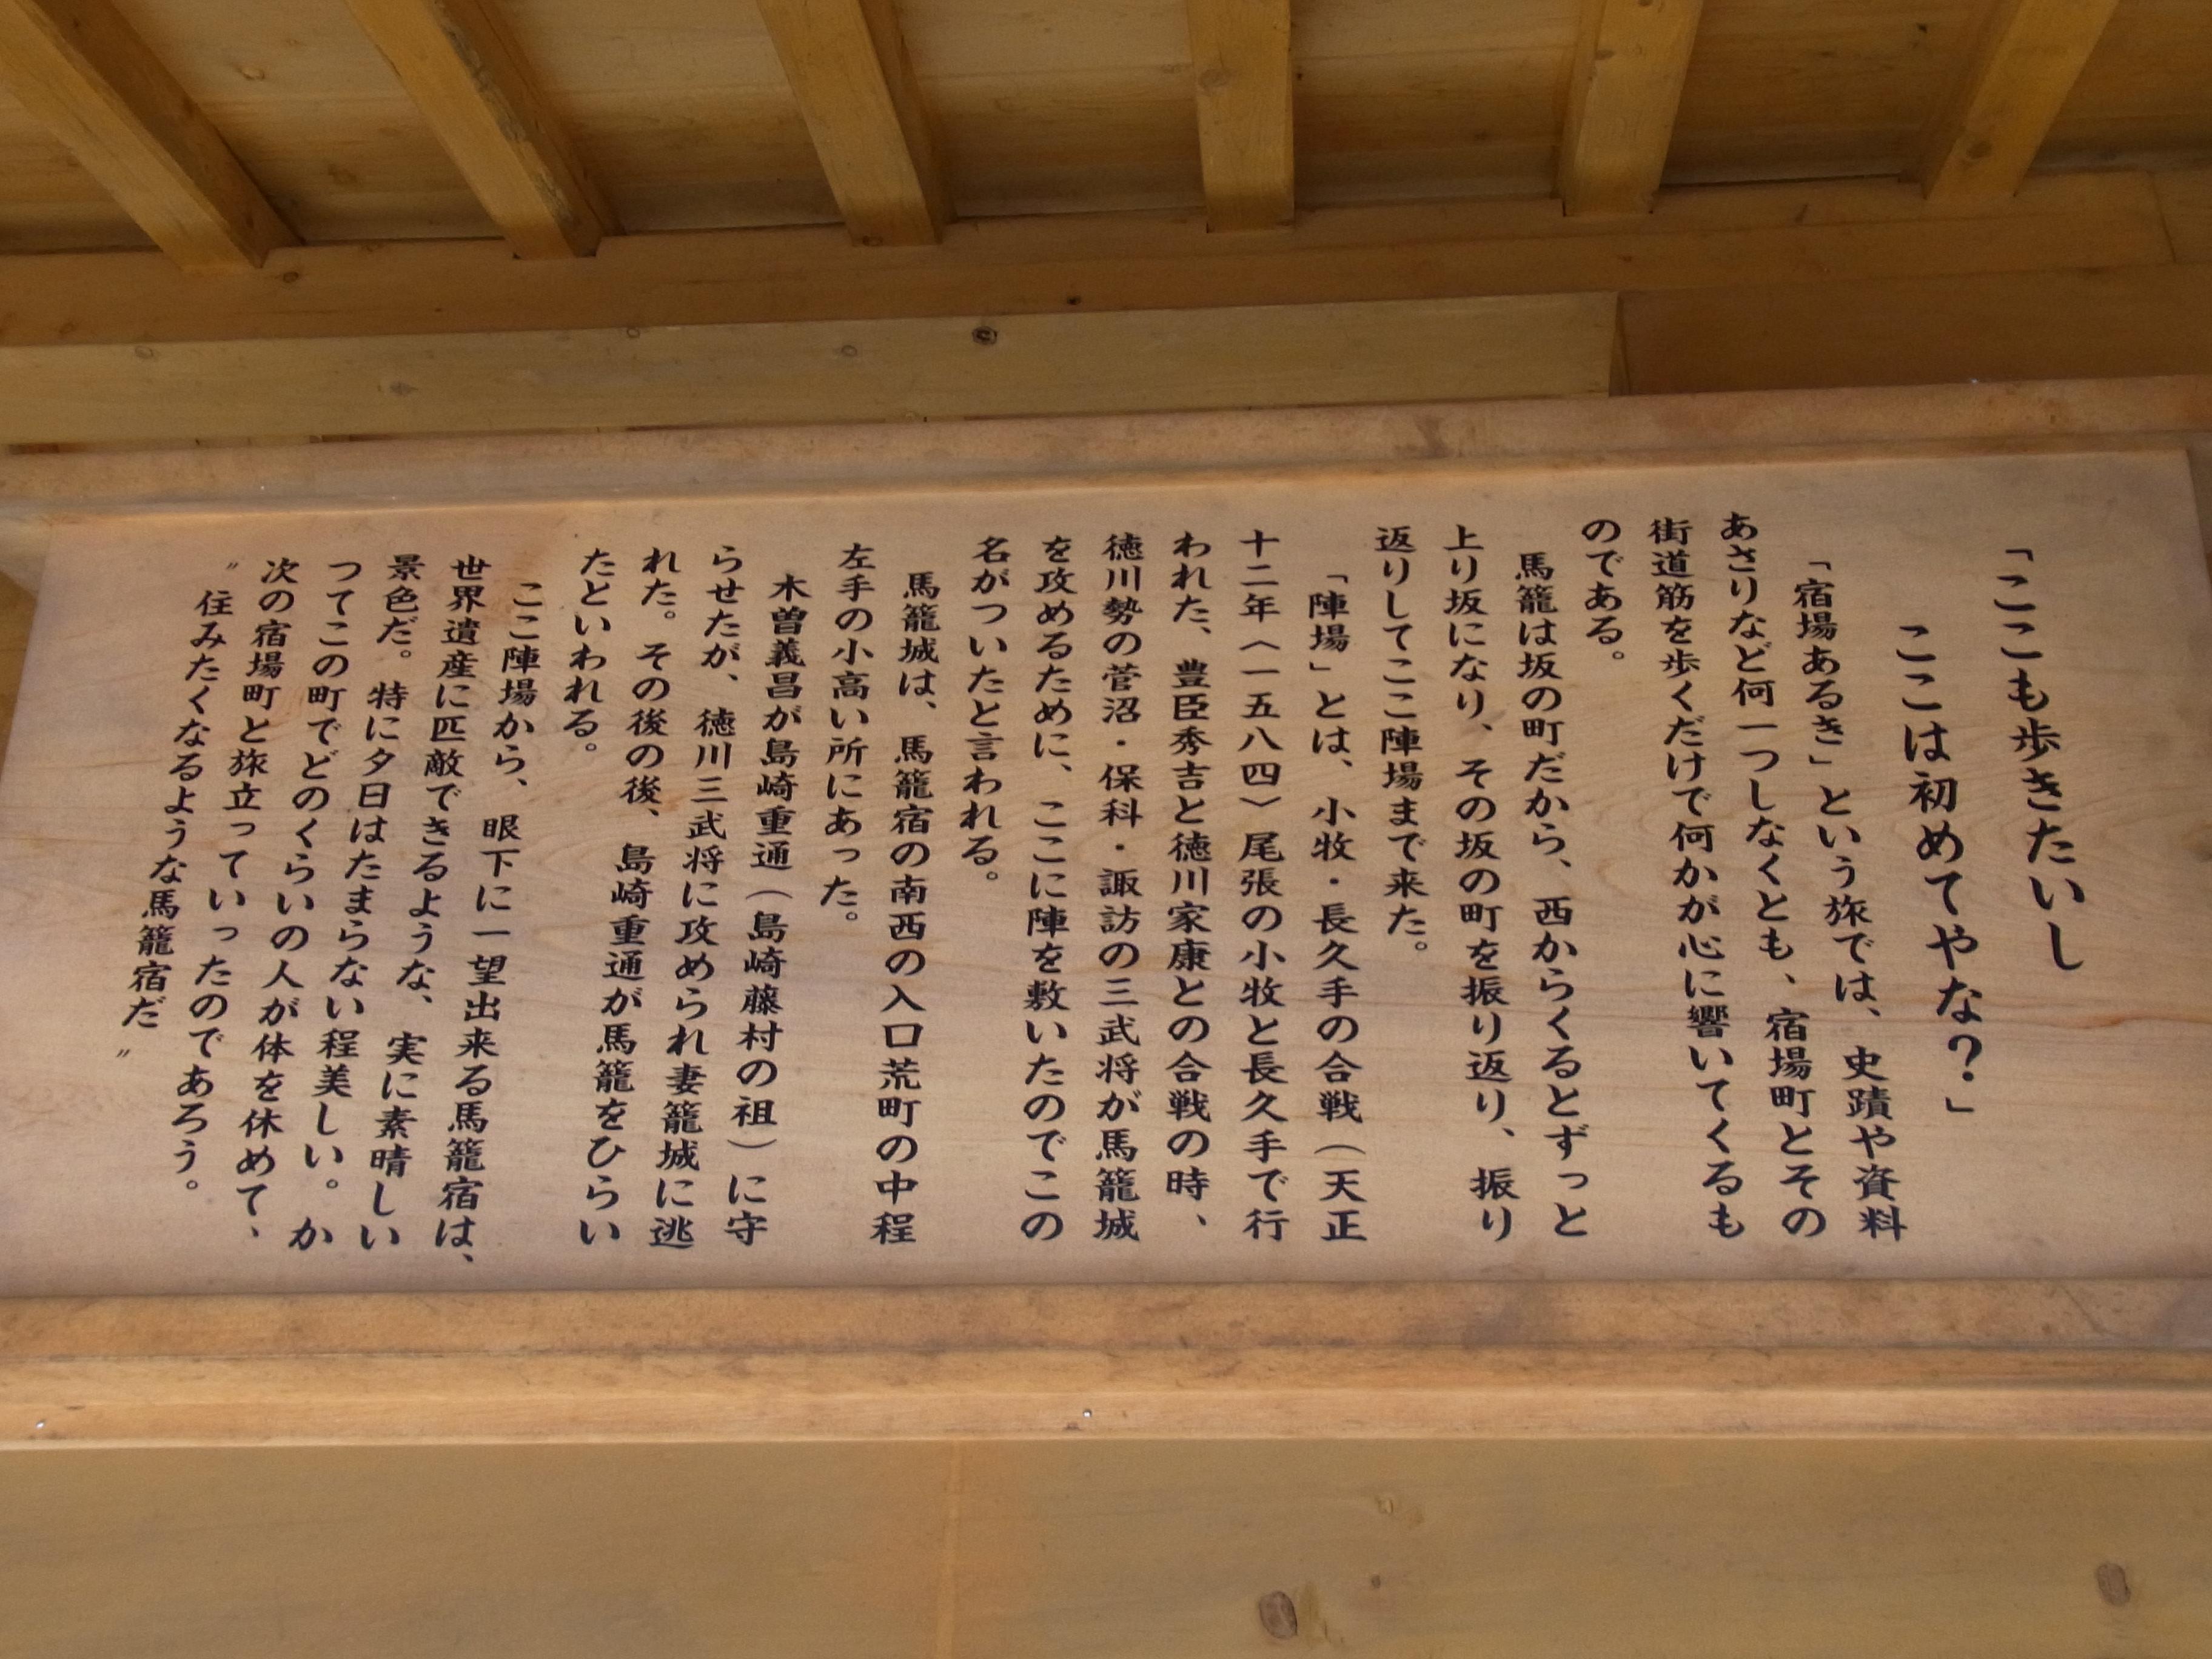 「ここも歩きたいし
ここは初めてやな？」
「宿場あるき」という旅では、史蹟や資料
あさりなど何一つしなくとも、宿場町とその
街道筋を歩くだけで何かが心に響いてくるも
のである。
馬籠は坂の町だから、西からくるとずっと
上り坂になり、その坂の町を振り返り、振り
返りしてここ陣場まで来た。
「陣場」とは、小牧・長久手の合戦（天正
十二年〈一五八四〉尾張の小牧と長久手で行
われた、豊臣秀吉と徳川家康との合戦の時、
徳川勢の菅沼・保科・諏訪の三武将が馬籠城
を攻めるために、ここに陣を敷いたのでこの
名がついたと言われる。
馬籠城は、馬籠宿の南西の入口荒町の中程
左手の小高い所にあった。
木曽義昌が島崎重通（島崎藤村の祖）に守
らせたが、徳川三武将に攻められ妻籠城に逃
れた。その後の後、島崎重通が馬籠をひらい
たといわれる。
ここ陣場から、眼下に一望出来る馬籠宿は、
世界遺産に匹敵できるような、実に素晴しい
景色だ。特に夕日はたまらない程美しい。か
つてこの町でどのくらいの人が体を休めて、
次の宿場町と旅立っていったのであろう。
〝住みたくなるような馬籠宿だ〟